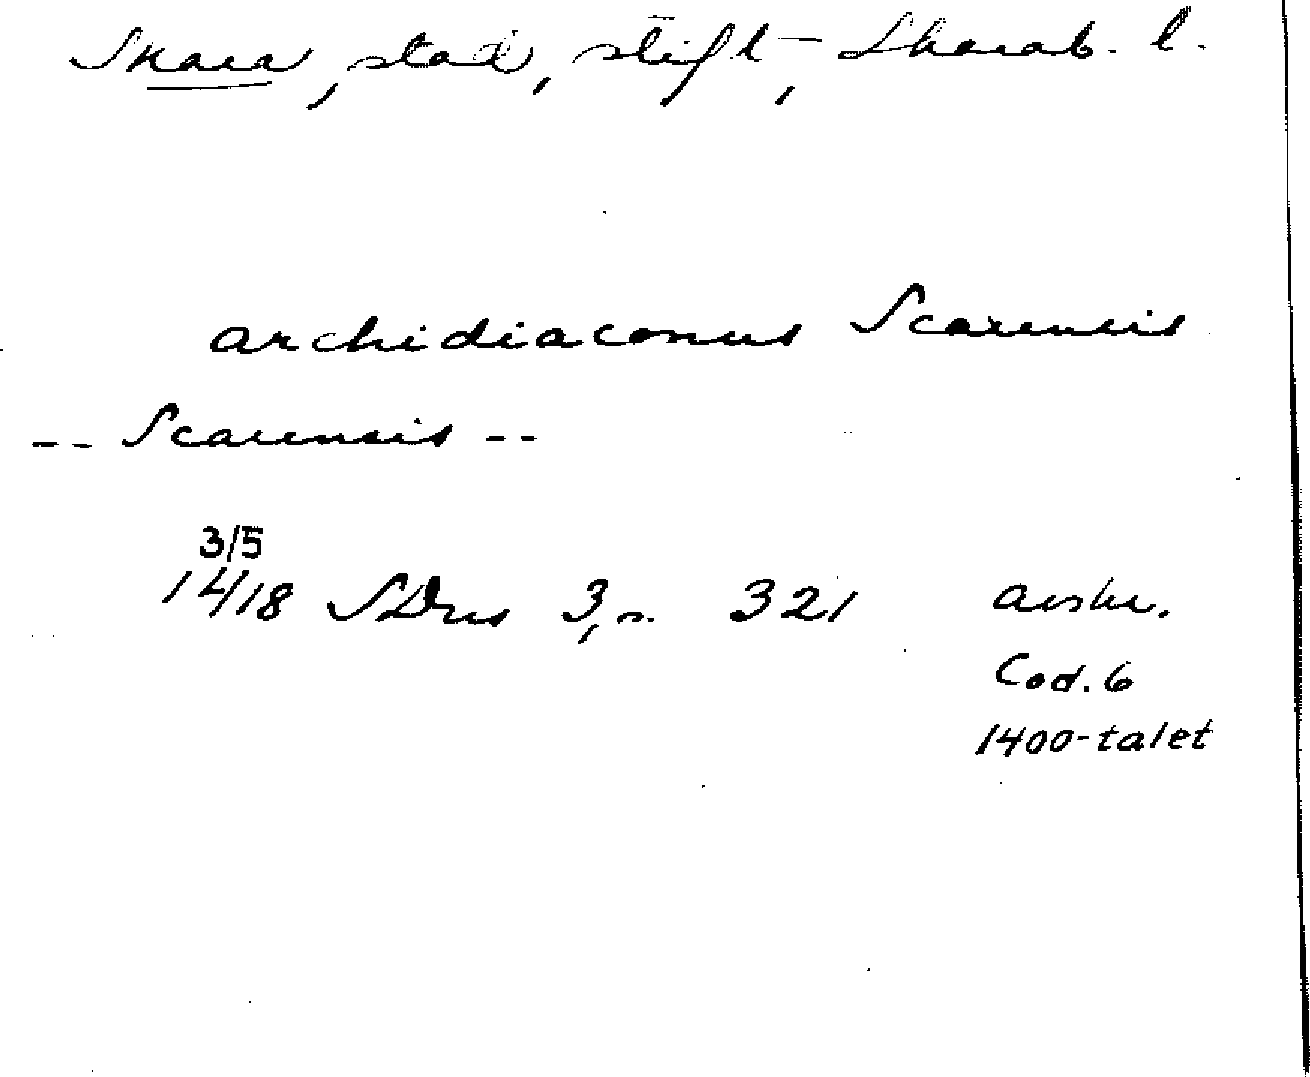 Skara, stad, stift, Skarab. l.
archidiaconus Scarensis
-- Scarensis --
3/5
1418 SDns 3, s. 321 avskr.
Cod. 6
1400-talet